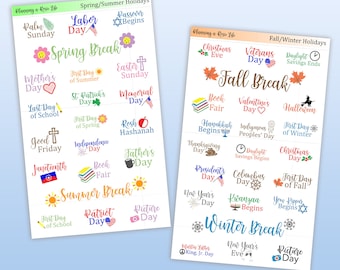 Planning a Rose Life
Spring/Summer Holidays
Palm
Sunday
Labor
Day
Passover
Begins
Spring Break
Mother's
Day
First Day of
Summer
Easter
Sunday
Last Day
of School
St. Patrick's
Day
Memorial
Day
First Day
of Spring
Rosh
Hashanah
Good
Friday
Independence
Day
Cinco
de Mayo
Juneteenth
Book
Fair
Father's
Day
Summer Break
First Day
of School
Patriot
Day
Picture
Day
Planning a Rose Life
Fall/Winter Holidays
Christmas
Eve
Veterans
Day
Daylight
Savings Ends
Fall Break
Book
Fair
Valentine's
Day
Halloween
Hanukkah
Begins
Indigenous
Peoples' Day
First Day
of Winter
Thanksgiving
Daylight
Savings Begins
Christmas
Day
Election
Day
Columbus
Day
First Day
of Fall
New Year's
Day
Kwanzaa
Begins
Yom Kippur
Begins
Winter Break
Martin Luther
King, Jr. Day
New Year's
Eve
Picture
Day